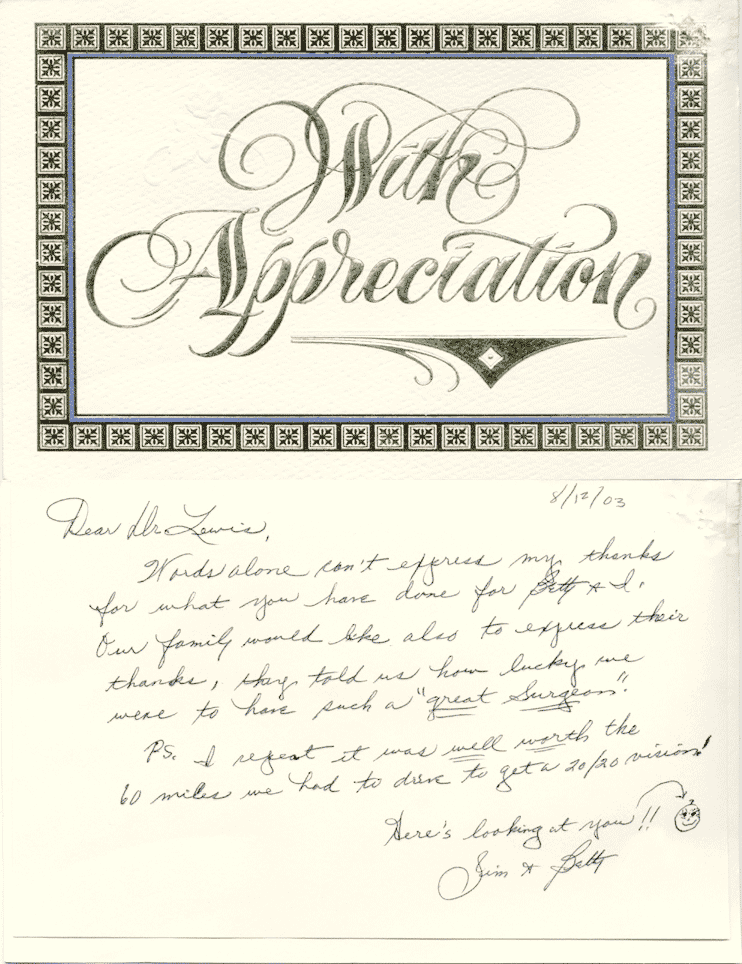 With
Appreciation
8/12/03
Dear Dr Lewis,
Words alone can't express my thanks
for what you have done for Betty & I.
Our family would like also to express their
thanks, they told us how lucky we
were to have such a "great Surgeon".
P.S. I repeat it was well worth the
60 miles we had to drive to get a 20/20 vision!
Here's looking at you!!
Jim & Betty